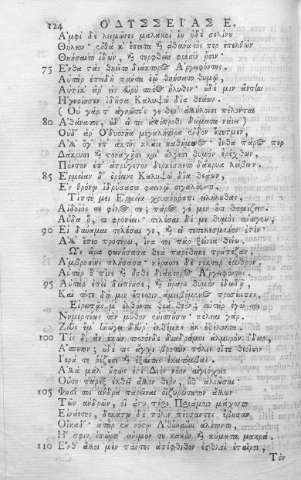 124 ΟΔΥΣΣΕΙΑΣ Ε.
Ἀμφὶ δὲ λειμῶνες μαλακοὶ ἴου ἠδὲ σελίνου
Θήλεον· ἔνθα κ' ἔπειτα καὶ ἀθάνατός περ ἐπελθὼν
Θηήσαιτο ἰδὼν, καὶ τερφθείη φρεσὶν ᾗσιν.
75 Ἔνθα στὰς θηεῖτο διάκτορος Ἀργειφόντης.
Αὐτὰρ ἐπειδὴ πάντα ἑῷ θηήσατο θυμῷ,
Αὐτίκ' ἄρ' εἰς εὐρὺ σπέος ἤλυθεν· οὐδέ μιν ἄντην
Ἠγνοίησεν ἰδοῦσα Καλυψὼ δῖα θεάων.
(Οὐ γάρ τ' ἀγνῶτες θεοὶ ἀλλήλοισι πέλονται
80 Ἀθάνατοι, οὐδ' εἴ τις ἀπόπροθι δώματα ναίει)
Οὐδ' ἄρ' Ὀδυσσῆα μεγαλήτορα ἔνδον ἔτετμεν,
Ἀλλ' ὅγ' ἐπ' ἀκτῆς κλαῖε καθήμενος, ἔνθα πάρος περ
Δάκρυσι καὶ στοναχῇσι καὶ ἄλγεσι θυμὸν ἐρέχθων,
Πόντον ἐπ' ἀτρύγετον δερκέσκετο δάκρυα λείβων.
85 Ἑρμείαν δ' ἐρέεινε Καλυψὼ δῖα θεάων,
Ἐν θρόνῳ ἱδρύσασα φαεινῷ σιγαλόεντι.
Τίπτέ μοι Ἑρμεία χρυσόρραπι εἰλήλουθας,
Αἰδοῖός τε φίλος τε; πάρος γε μὲν οὔτι θαμίζεις.
Αὔδα ὅ, τι φρονέεις· τελέσαι δέ με θυμὸς ἄνωγεν,
90 Εἰ δύναμαι τελέσαι γε, καὶ εἰ τετελεσμένον ἐστίν.
Ἀλλ' ἕπεο προτέρω, ἵνα τοι πὰρ ξείνια θείω.
Ὣς ἄρα φωνήσασα θεὰ παρέθηκε τράπεζαν,
Ἀμβροσίης πλήσασα· κέρασσε δὲ νέκταρ ἐρυθρόν.
Αὐτὰρ ὁ πῖνε καὶ ἦσθε διάκτορος Ἀργειφόντης.
95 Αὐτὰρ ἐπεὶ δείπνησε, καὶ ἤραρε θυμὸν ἐδωδῇ,
Καὶ τότε δή μιν ἔπεσσιν ἀμειβόμενος προσέειπεν.
Εἰρωτᾷς μ' ἐλθόντα θεὰ θεόν; αὐτὰρ ἐγώ τοι
Νημερτέως τὸν μῦθον ἐνισπήσω· κέλεαι γάρ.
Ζεὺς ἐμέ γ' ἠνώγει δεῦρ' ἐλθέμεν οὐκ ἐθέλοντα.
100 Τίς δ' ἂν ἑκὼν τοσσόνδε διαδράμοι ἁλμυρὸν ὕδωρ,
Ἄσπετον; οὐδέ τις ἄγχι βροτῶν πόλις οἵτε θεοῖσιν
Ἱερά τε ῥέζουσι καὶ ἐξαίτους ἑκατόμβας.
Ἀλλὰ μάλ' οὔπως ἔστι Διὸς νόον αἰγιόχοιο
Οὔτε παρὲξ ἐλθεῖν ἄλλον θεὸν, οὔθ' ἁλιῶσαι.
105 Φησί τοι ἄνδρα παρεῖναι ὀϊζυρώτατον ἄλλων
Τῶν ἀνδρῶν, οἳ ἄστυ πέρι Πριάμοιο μάχοντο
Εἰνάετες, δεκάτῳ δὲ πόλιν πέρσαντες ἔβησαν
Οἴκαδ'· ἀτὰρ ἐν νόστῳ Ἀθηναίην ἀλίτοντο,
Ἥ σφιν ἐπῶρσ' ἄνεμόν τε κακὸν καὶ κύματα μακρά.
110 Ἔνθ' ἄλλοι μὲν πάντες ἀπέφθιθεν ἐσθλοὶ ἑταῖροι,
Τὸν